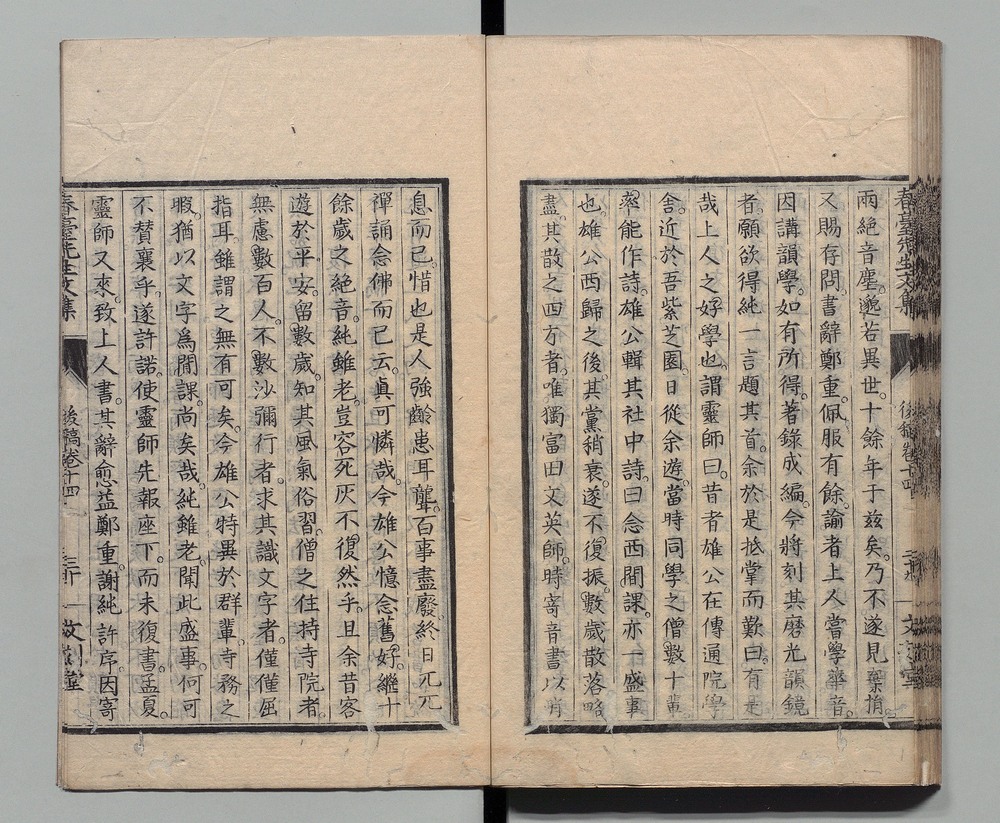 兩絕音塵。邈若異世。十餘年于玆矣。乃不遂見棄捐
又賜存問。書辭鄭重。佩服有餘。諭者上人嘗學華音。
因講韻學。如有所得。著錄成編。今將刻其磨光韻鏡
者。願欲得純一言題其首。余於是抵掌而歎曰。有是
哉上人之好學也。謂靈師曰。昔者雄公在傳通院學
舍。近於吾紫芝園。日從余遊。當時同學之僧數十輩
率能作詩。雄公輯其社中詩。曰念西閒課。亦一盛事
也。雄公西歸之後。其黨稍衰。遂不復振。數歲散落略
盡。其散之四方者。唯獨富田文英師。時寄音書以
息而已。惜也是人強齡患耳聾。百事盡廢。終日兀兀
禪誦念佛而已云。眞可憐哉。今雄公憶念舊好。繼十
餘歲之絕音。純雖老。豈容死灰不復然乎。且余昔客
遊於平安。留數歲。知其風氣俗習。僧之住持寺院者。
無慮數百人。不數沙彌行者。求其識文字者。僅僅屈
指耳。雖謂之無有可矣。今雄公特異於群輩。寺務之
暇。猶以文字爲閒課。尚矣哉。純雖老。聞此盛事。何可
不贊襄乎。遂許諾。使靈師先報座下。而未復書。孟夏。
靈師又來。致上人書。其辭愈益鄭重。謝純許序。因寄
春臺先生文集
後稿卷十四
三十